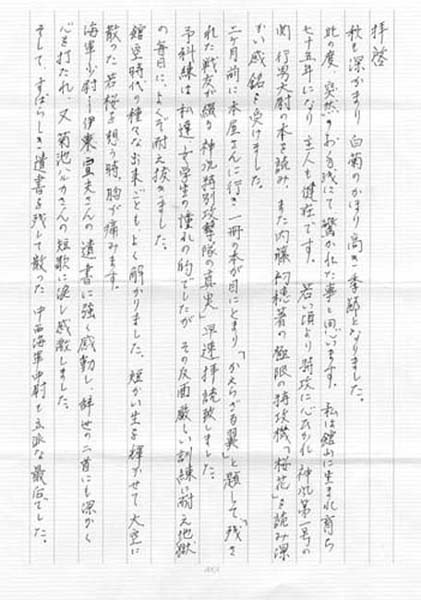 拝啓
秋も深かまり 白菊のかほり高き季節となりました。
此の度、突然のお手残にて驚かれた事と思います。私は館山に生まれ育ち
七十五年になり主人も健在です。 若い頃より特攻に心ひかれ神風第一号の
関行男大尉の本を読み、また内藤初穂著の極限の特攻機「桜花」を読み深
かい感銘を受けました。
二ヶ月前に本屋さんに行き一冊の本が目にとまり「かえらざる翼」と題して「残さ
れた戦友が綴る神風特別攻撃隊の真実」早速拝読致しました。
予科練は私達女学生の憧れの的でしたが その反面厳しい訓練に耐え地獄
の毎日に、よくぞ耐え抜きました。
館空時代の種々な出来ごとも、よく解かりました。短かい生を輝かせて大空に
散った若桜を想う時、胸が痛みます。
海軍少尉 伊東宣夫さんの遺書に強く感動し、辞世の二首にも深かく
心を打たれ、又菊池 さんの短歌に涙し感激しました。
そして、すばらしき遺書を残して散った 中西海軍中尉も立派な最后でした。